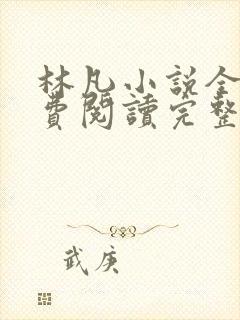 林凡小説全
費閱讀完整
武庚